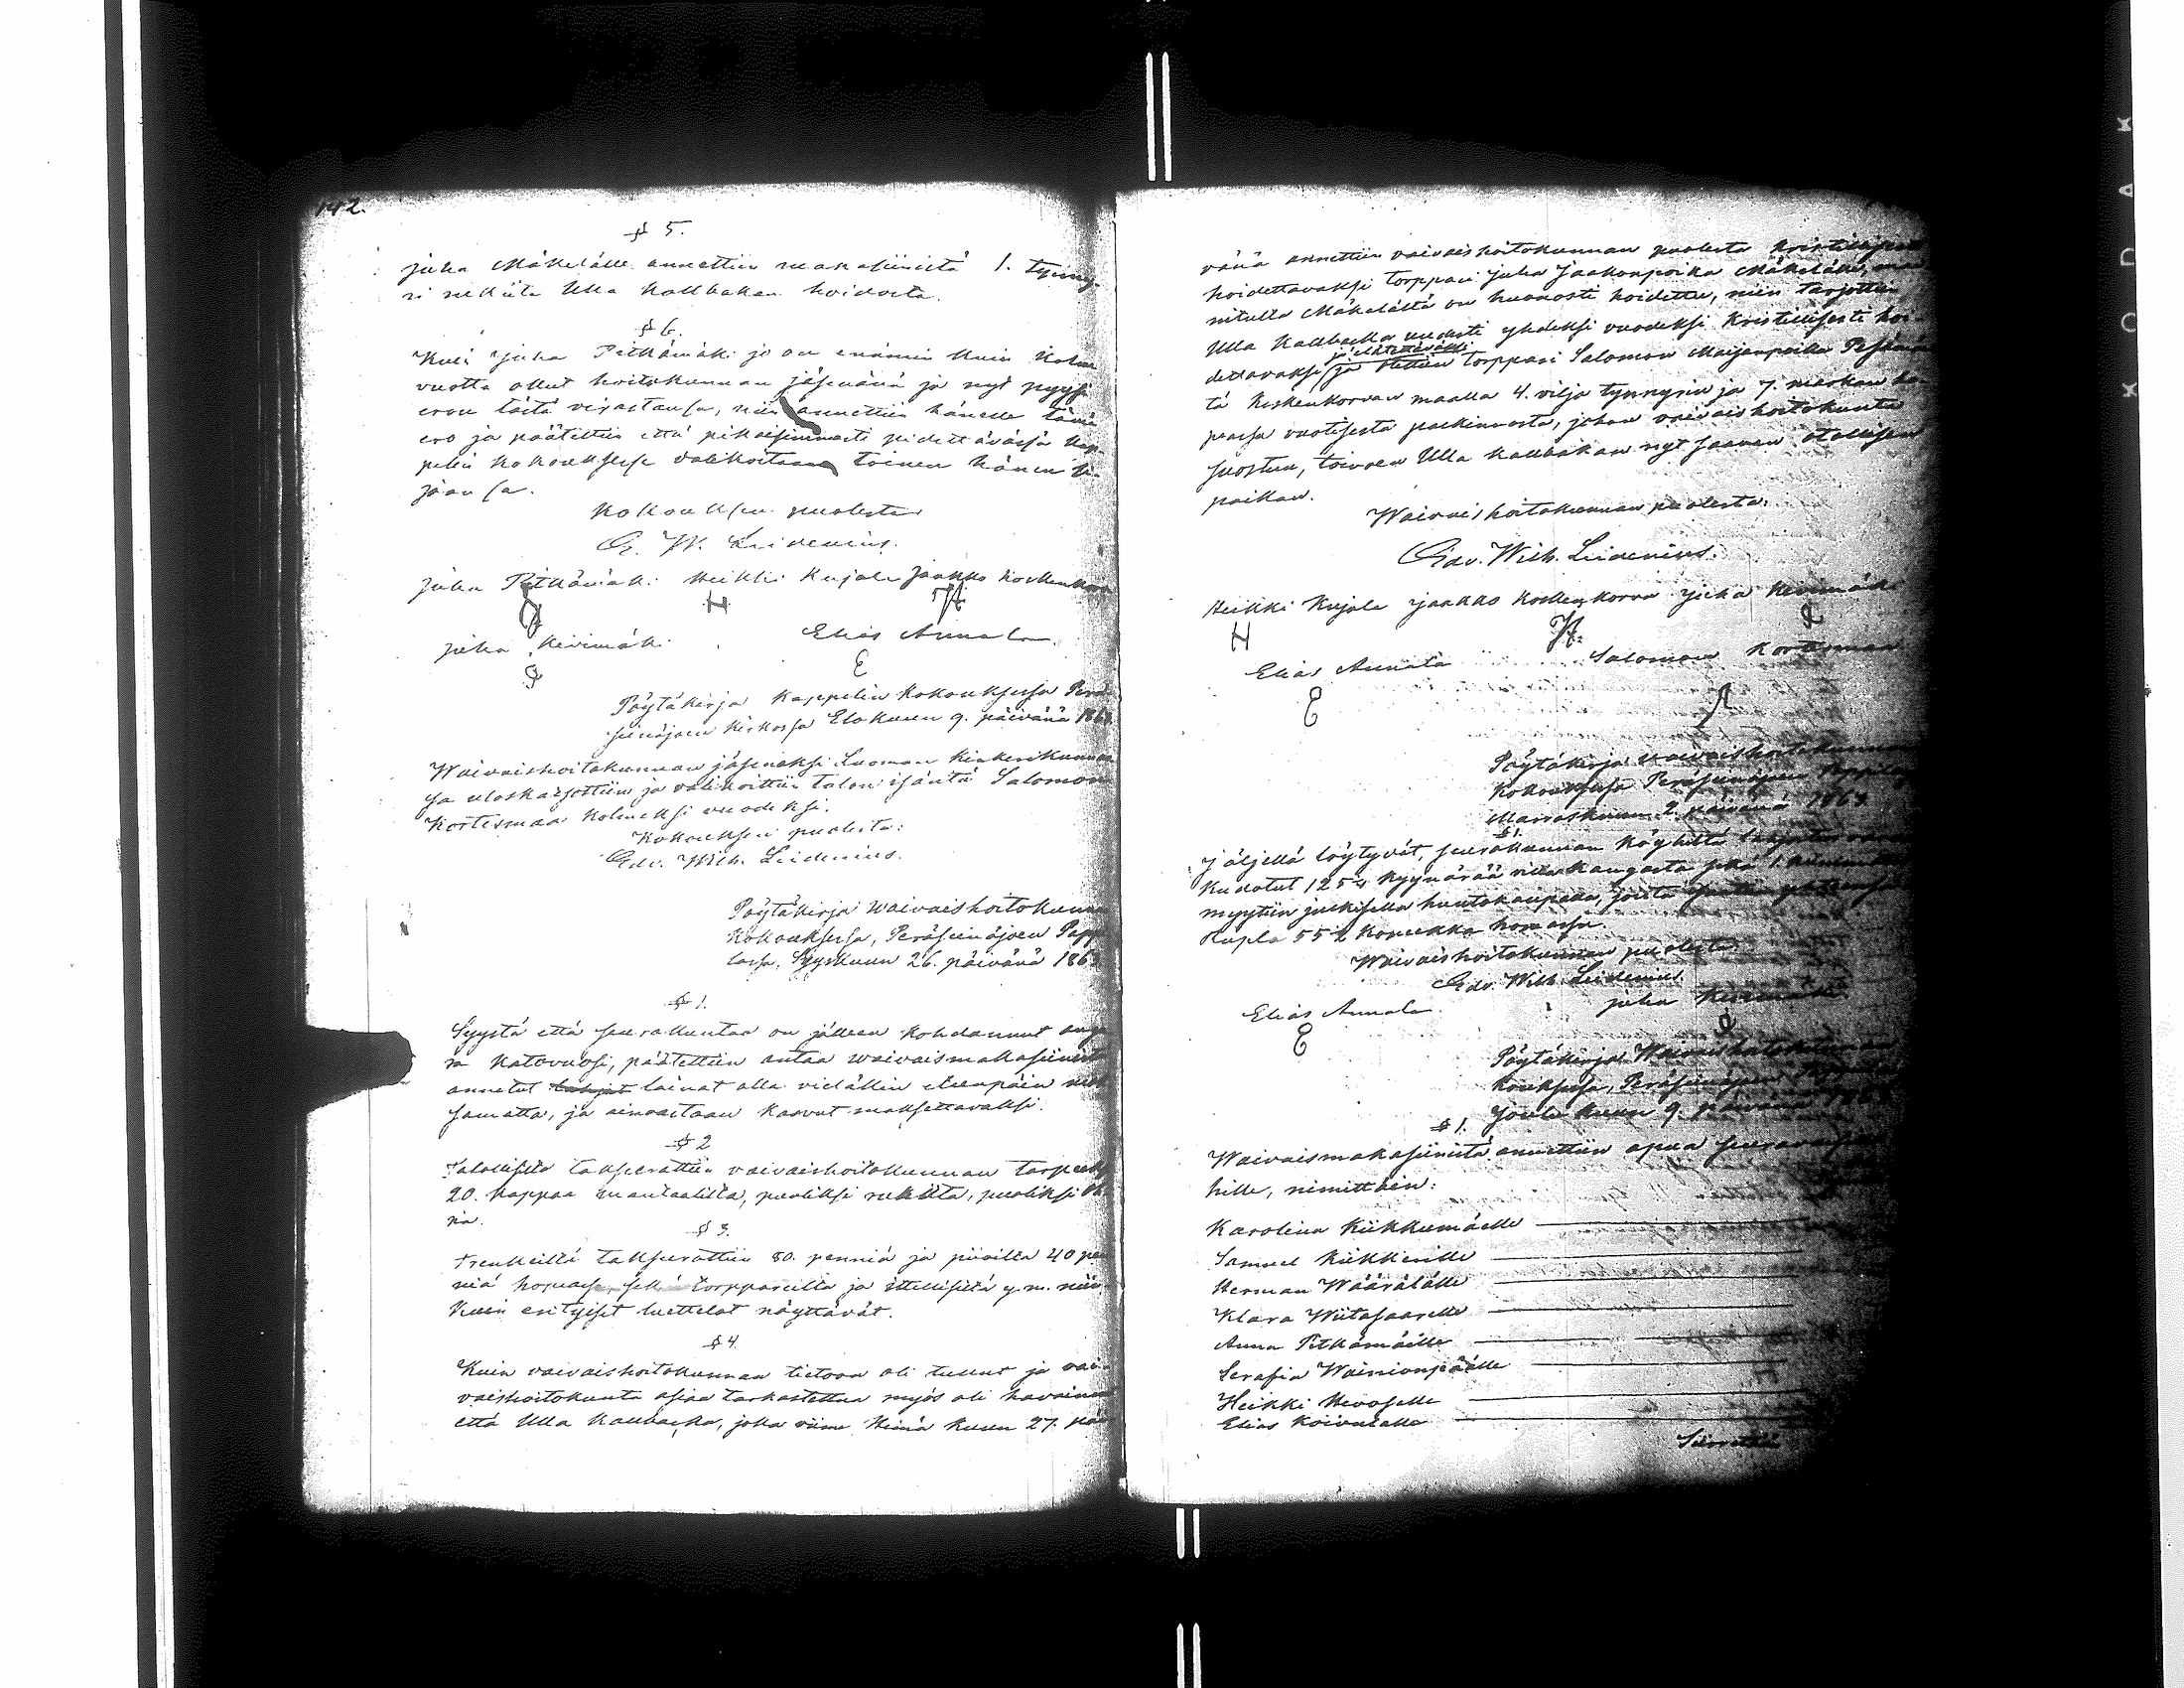 142.
§ 5.
Juha Mäkelälle annettiin makasiinista 1. tynny-
ri rukiita Ulla Kallbakan hoidosta.
§ 6.
Kuin Juha Pitkämäki jo on enämin kuin kolme
vuotta ollut hoitokunnan jäsenänä ja nyt pyysi
eron tästä virastansa, niin annettiin hänelle tämä
ero ja päätettiin että pikaisimmasti pidettävässä kap-
pelin kokouksessa valikoitaan toinen hänen si-
jaansa.
Kokouksen puolesta
G. W. Leidenius.
Juha Pitkämäki Heikki Kujala Jaakko Koskenkorva
H
Juha Kivimäki Elias Annala
E
Pöytäkirja Kappelin Kokouksessa Perä-
seinäjoen kirkossa Elokuun 9. päivänä 186
Waivaishoitokunnan jäseneksi Luoman Kinkerikunnas-
sa uloskatsottiin ja valikoittiin talon isäntä Salomon
Kortesmaa kolmeksi vuodeksi.
Kokouksen puolesta:
Edv. Wilh. Leidenius.
Pöytäkirja Waivaishoitokunnan
Kokouksessa, Peräseinäjoen Papp-
lassa, Syyskuun 26. päivänä 186
§ 1.
Syystä että seurakuntaa on jälleen kohdannut anga-
ra katovuosi, päätettiin antaa waivaismakasiinista
annetut lahjat lainat olla vielätkin eteenpäin mak-
samatta, ja ainoastaan kasvut maksettavaksi.
§ 2
Talollisilta takseerattiin vaivaishoitokunnan tarpeeksi
20. kappaa mantaalilta, puoliksi rukiita, puoliksi oh-
ria.
§ 3.
Trenkeiltä takseerattiin 80. penniä ja piioilta 40 pen-
niä hopeassa sekä torppareilta ja itsellisiltä y.m. niin-
kuin erityiset luettelot näyttävät.
§ 4.
Kuin vaivaishoitokunnan tietoon oli tullut ja vai-
vaishoitokunta asiaa tarkastettua myös oli havainnut
että Ulla Kallbacka, joka viime Heinäkuun 27. päi-
vänä annettiin vaivaishoitokunnan puolesta kristillisesti
hoidettavaksi torppari Juha Jaakonpoika Mäkelälle,
nitulla Mäkelältä on huonosti hoidettu, niin tarjottiin
Ulla Kallbacka uudesti yhdeksi vuodeksi Kristillisesti hoi-
ja elätettäväksi
dettavaksi ja otettiin torppari Salomon Maijanpoika
tä Koskenkorvan maalla 4. vilja tynnyrin ja 7. markan ho-
peassa vuotisesta palkinnosta, johon vaivaishoitokunta
suostuu, toivoen Ulla Kallbakan nyt saavan otollisen
paikan.
Waivaishoitokunnan puolesta.
Edv. Wilh. Leidenius.
Heikki Kujala Jaakko Koskenkorva Juha Kivimäki
H
Elias Annala Salomon Kortesmaa
E
Pöytäkirja waivaishoitokunnan
Kokouksessa Peräseinäjoen Pappilassa
Marraskuun 2. päivänä 186
§ 1.
Jäljellä löytyvät, seurakunnan köyhiltä
kudotut 125 kyynärää villakangasta sekä 1.
myytiin julkisella huutokaupalla, josta
Rupla 55 ½ kopeekka hopeassa.
Waivaishoitokunnan puolesta
Edv. Wilh. Leidenius.
Elias Annala Juha Kivimäki
E
Pöytäkirja Waivaishoitokunnan
kouksessa, Peräseinäjoen
Joulukuun 9. päivänä 186
§ 1.
Waivaismakasiinista annettiin apua seuraavaisille
hille, nimittäin:
Karolina Kiikkumäelle
Samuel Kiikkerille
Herman Määrälälle
Klara Wiitasaarelle
Anna Pitkämäelle
Serafia Wainionpäälle
Heikki Hevoselle
Elias Koivulalle
Siirrettävä